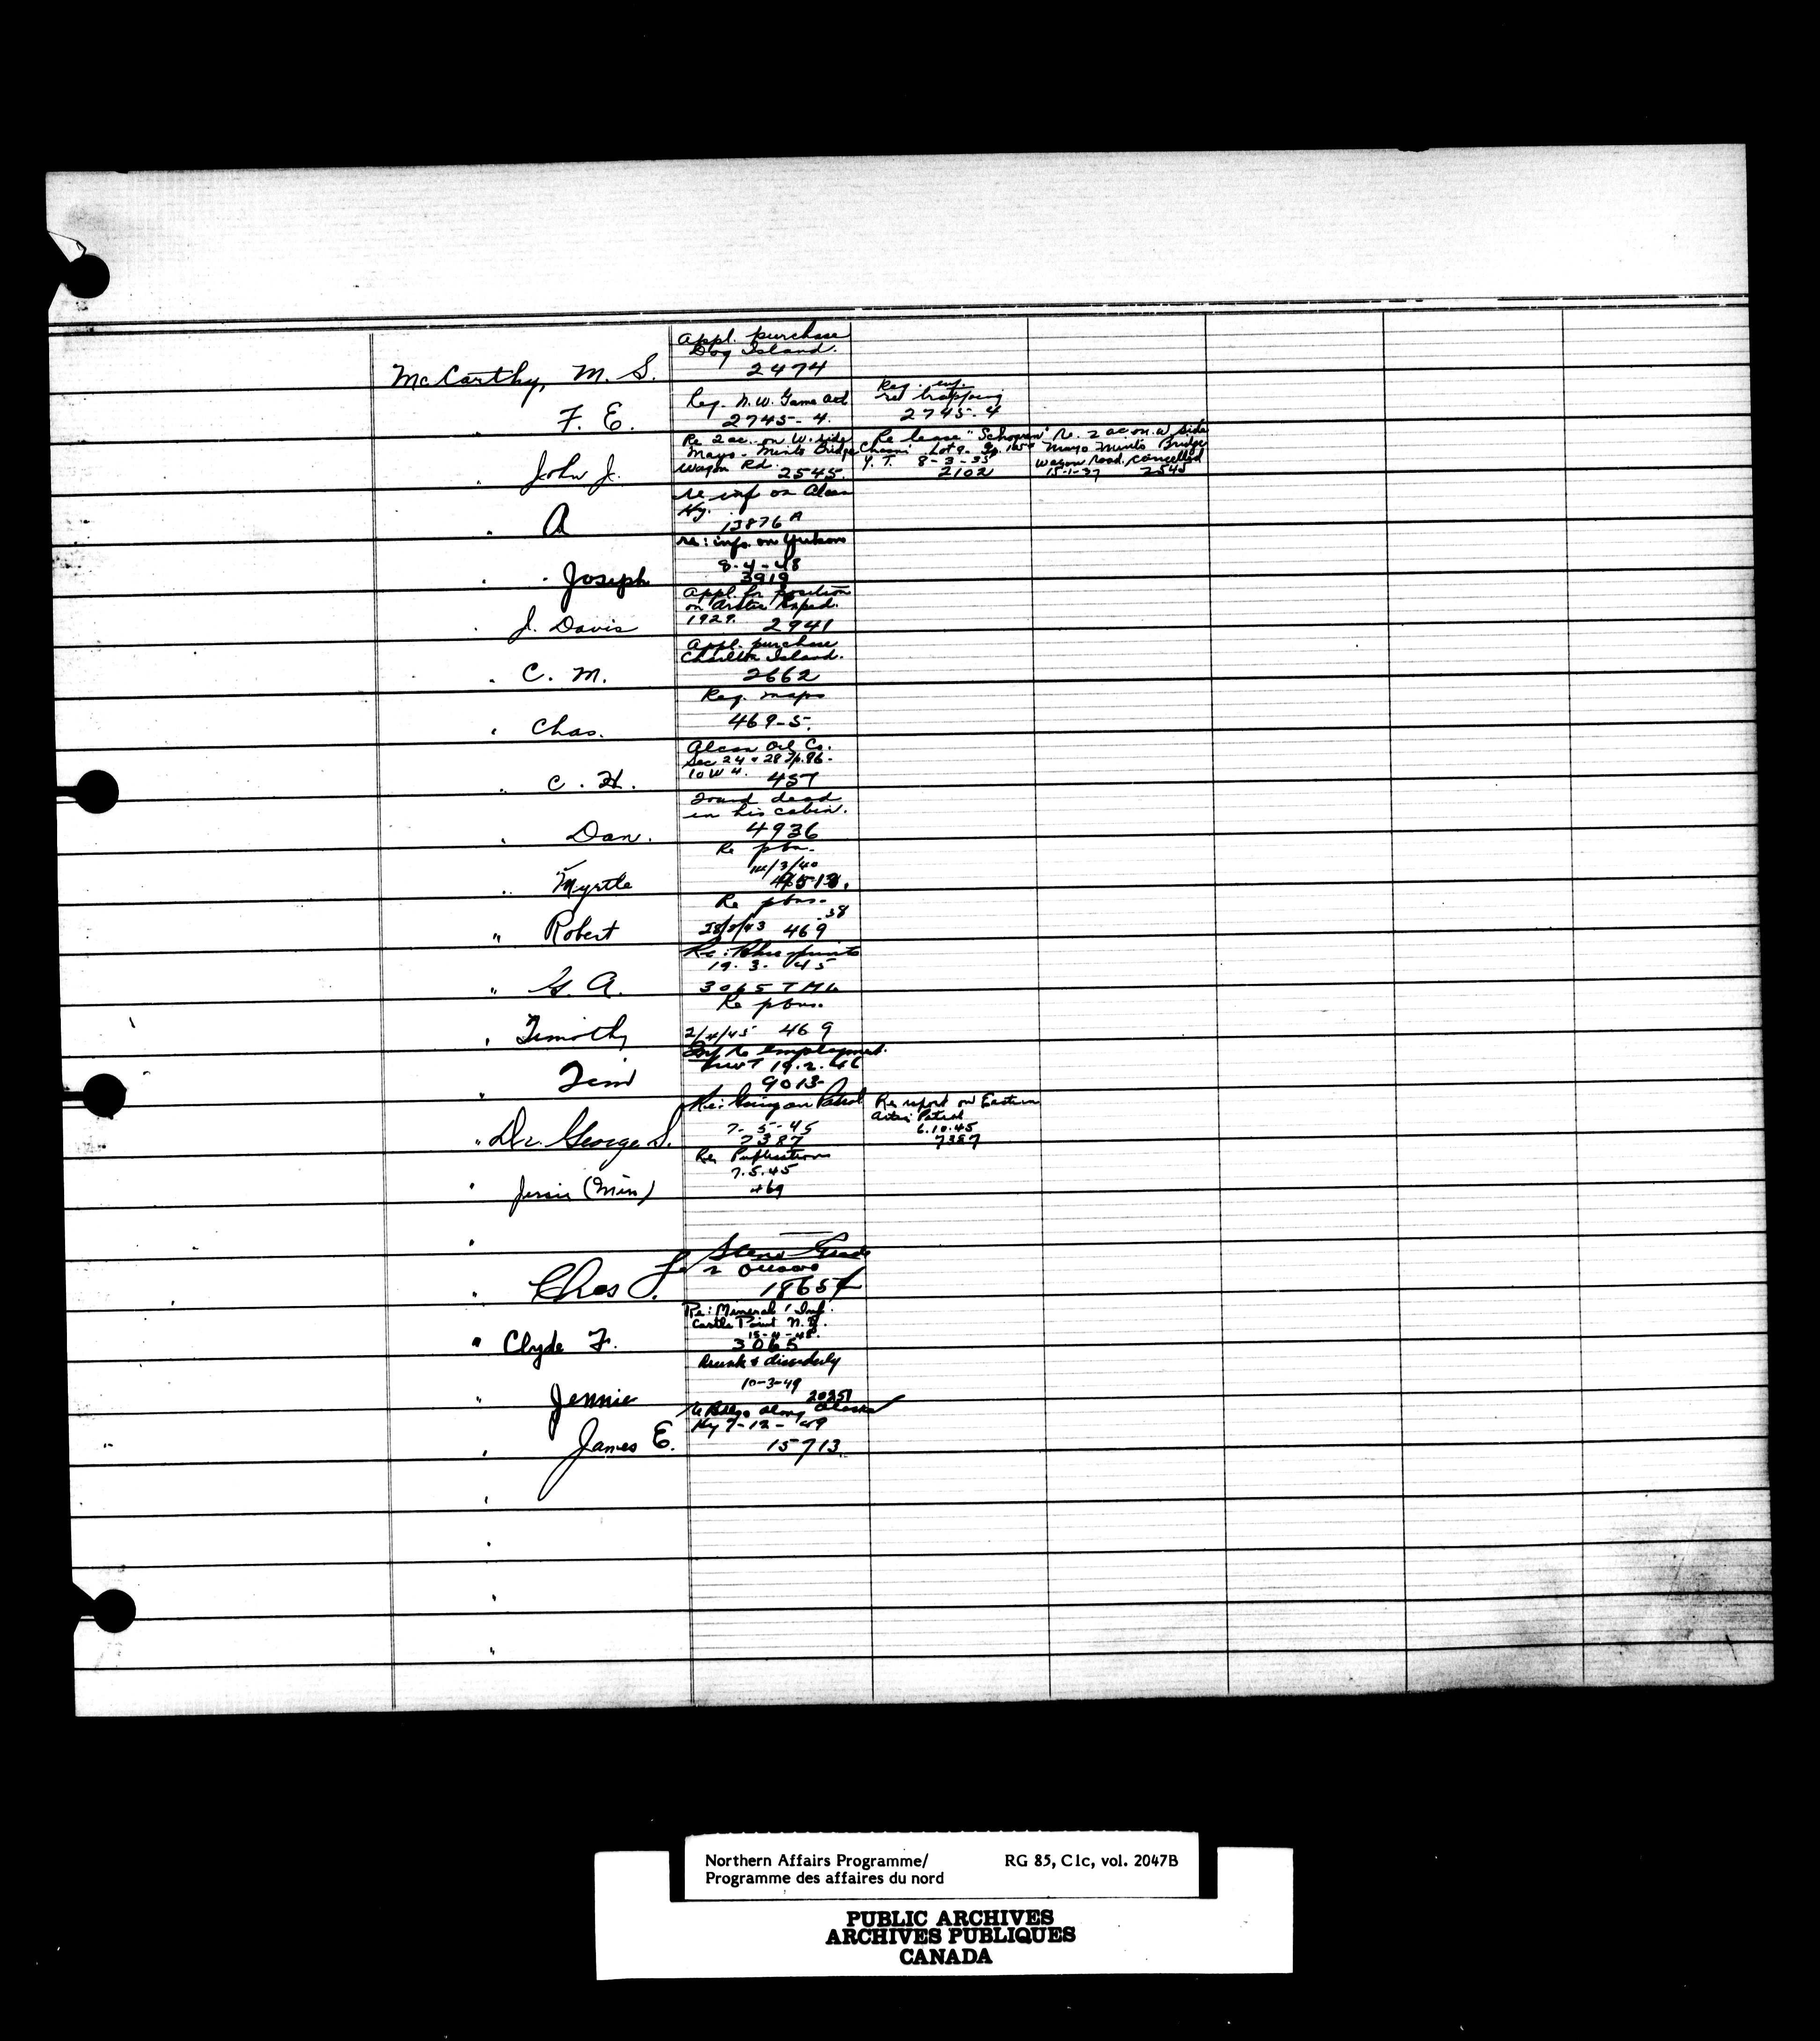 Appl. purchase
Dog Island.
McCarthy, M. S. 2474
Req. N.W. Game Act Req. inf.
re trapping
F. E. 2745-4. 2745-4
Re 2 ac. on W. side Re lease Lot 9. Re. 2 ac on W side
Mayo - Minto Bridge Mayo Minto Bridge
Wagon Rd. Y. T. 8-3-35 wagon road. cancelled
" John J. 2545. 2102 15-1-37 2545
re inf on Alcan
Hy.
" A 13876 A
re: info. on Yukon
8-4-48
" Joseph 3919
Appl. for position
on Arctic Exped.
1929.
" J. Davis 2941
Appl. purchase
Charlton Island.
" C. M. 2662
Req. maps
" Chas. 469-5.
Alcan Oil Co.
Sec 24 & 28 Tp. 86-
10 W 4.
" C. H. 457
Found dead
in his cabin.
" Dan. 4936
Re pbn.
14/3/40
" Myrtle 4513.
Re pbns.
" Robert 469-38
Re: Blueprints
19. 3. 45
" G. A. 3065
Re pbns.
" Timothy 2/4/45 469
Inf re employment.
NWT 19.2.46
" Tim 9013
Re: Going on Patrol Re report on Eastern
Arctic Patrol
7-5-45 6.10.45
" Dr. George S. 7387 7387
Re Publications
7.5.45
" Jessie (Miss) 469
"
Steno Grade
2 Ottawa
" Chas F. 18654
Re: Mineral Inf.
Castle Point N.Y.
15-4-48.
" Clyde F. 3065
Drunk & disorderly
10-3-49
" Jennie 20251
re Bldgs along Alaska
Hy 7-12-49
" James E. 15713
"
"
"
"
Northern Affairs Programme/ RG 85, C1c, vol. 2047B
Programme des affaires du nord
PUBLIC ARCHIVES
ARCHIVES PUBLIQUES
CANADA